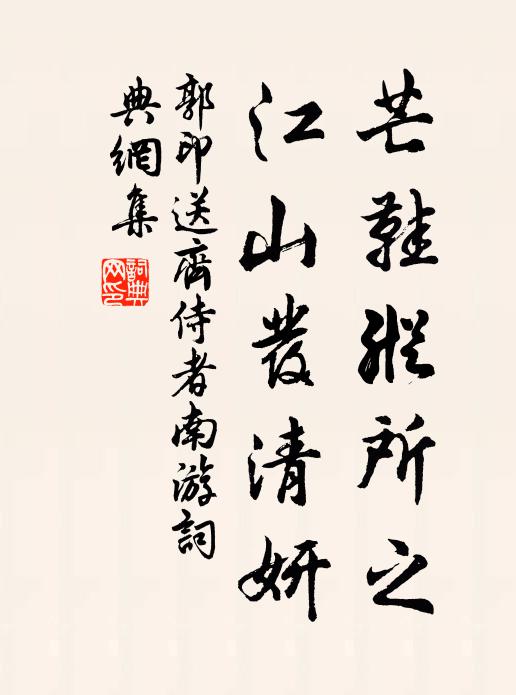 芒鞋縱所之
江山發清妍
郭印送齊侍者南游詞
典網集
詞典
网印